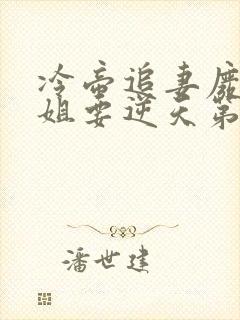 冷帝追妻废
姐要逆天第
潘世建